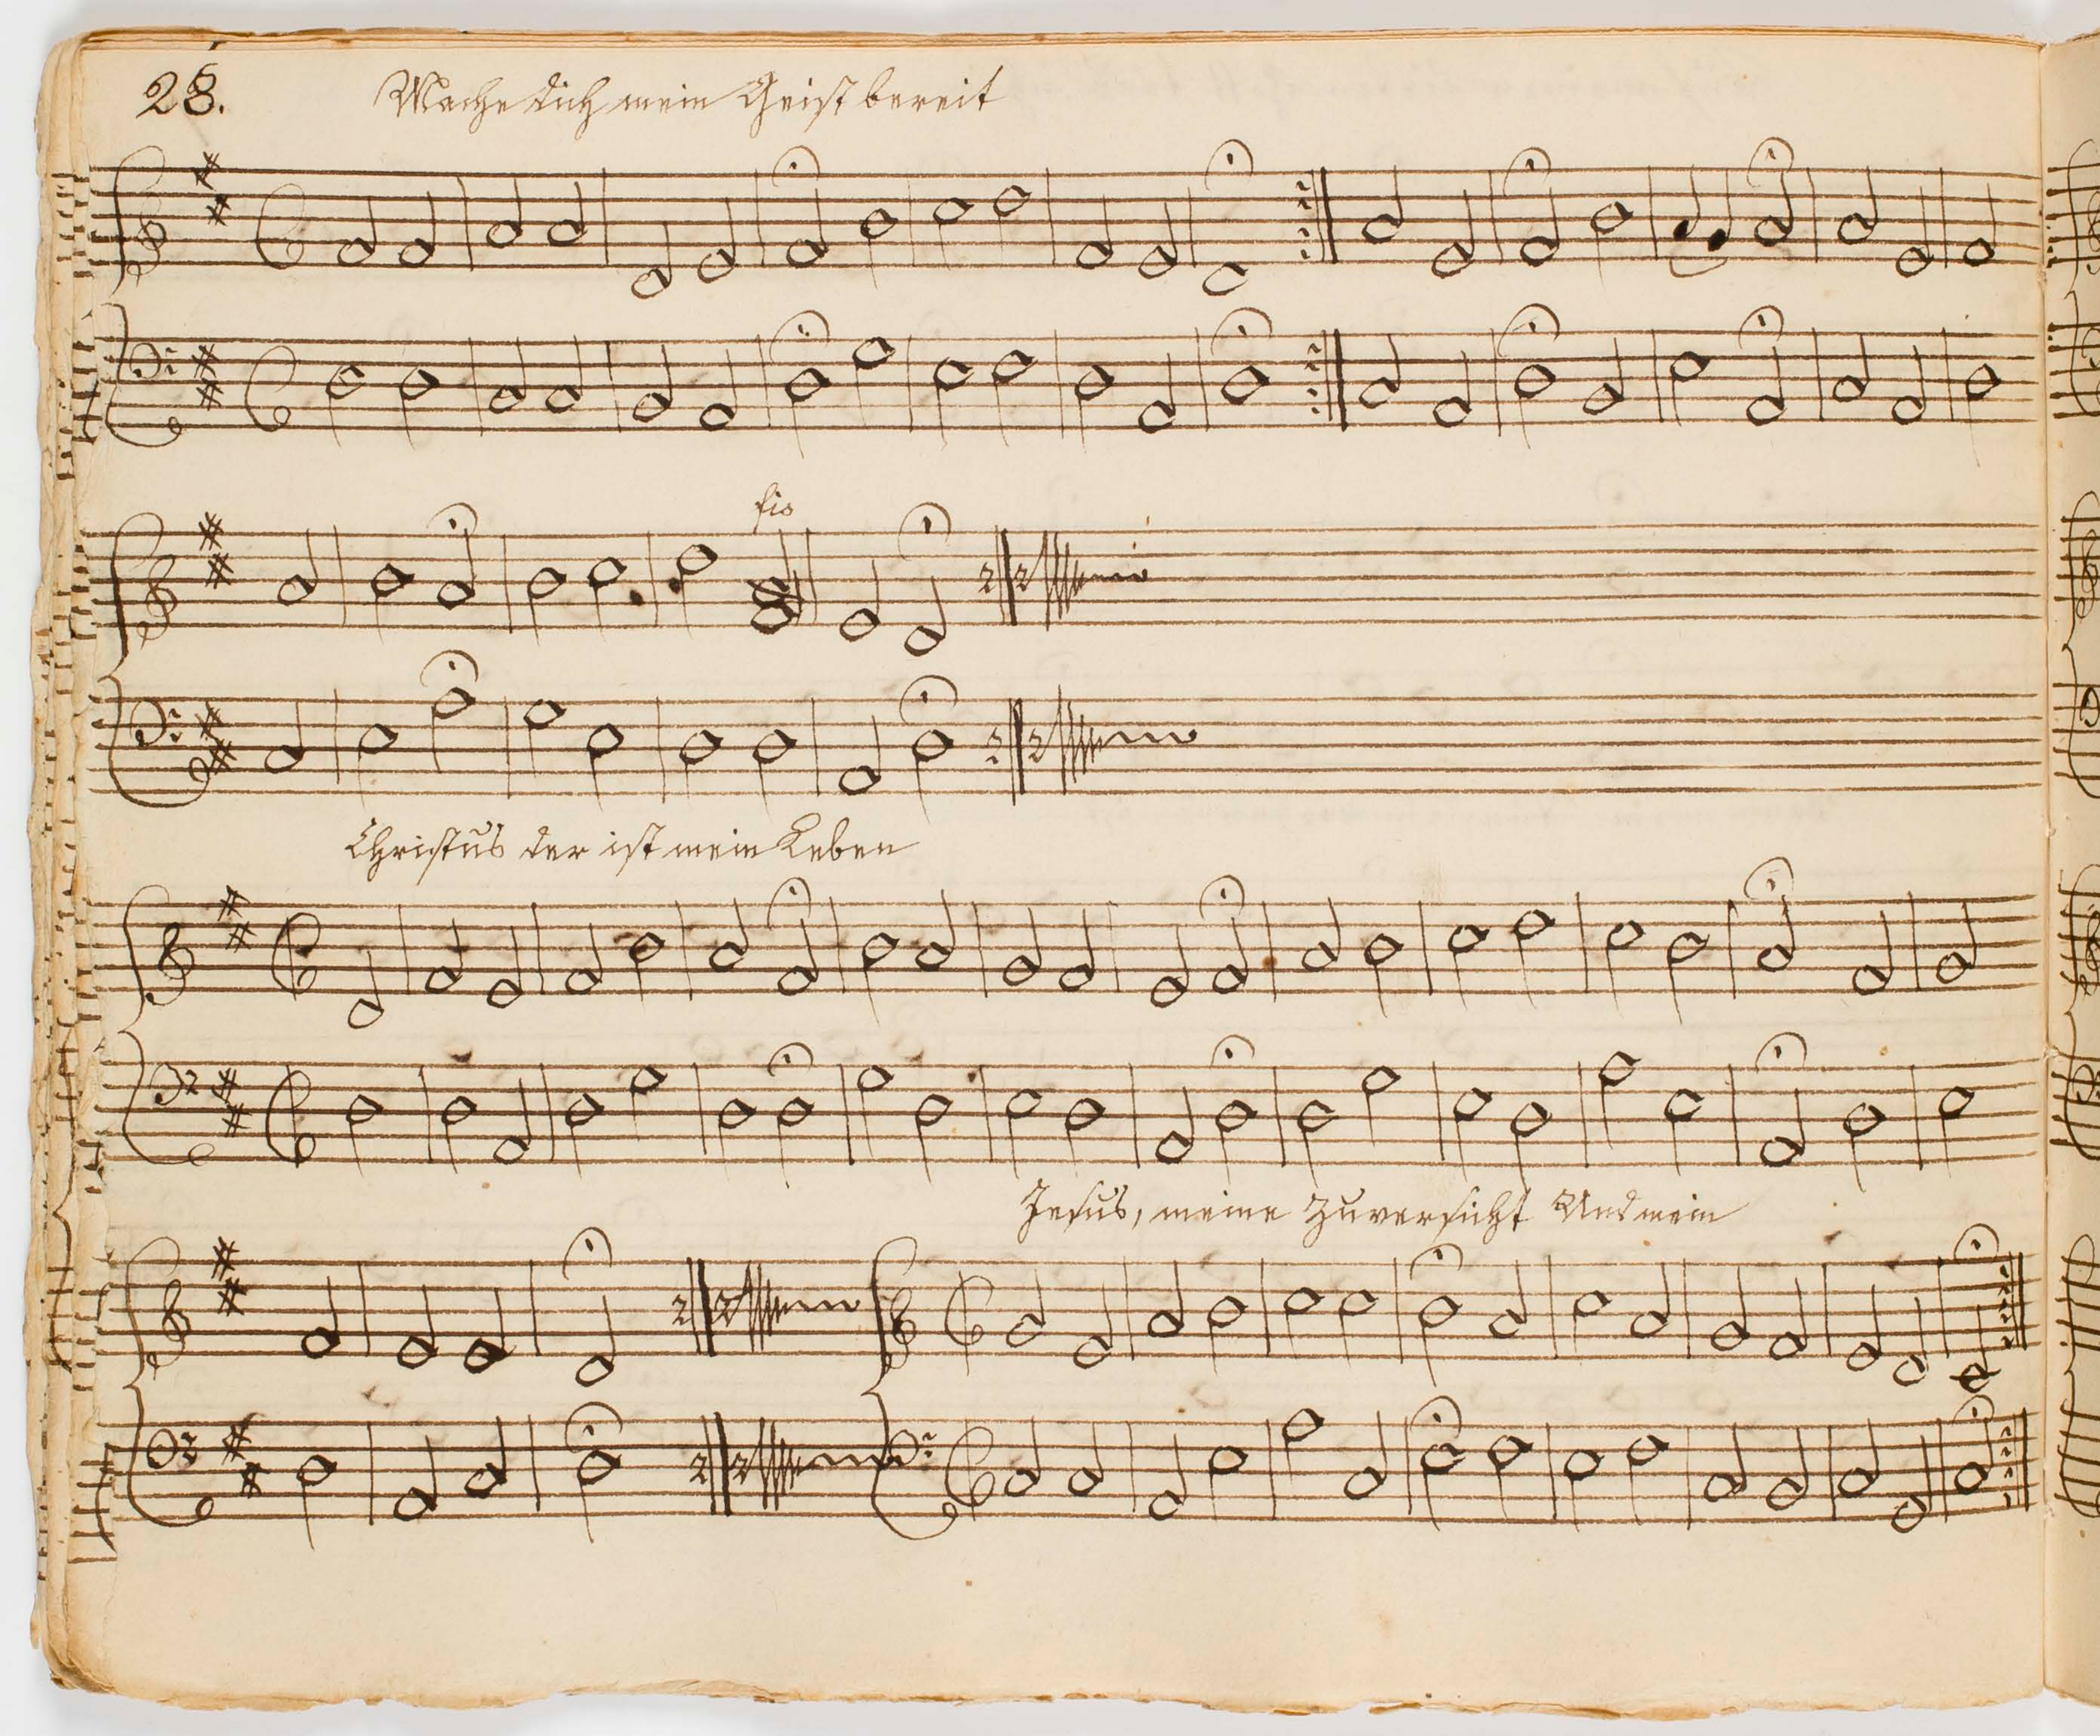 28.
Mache dich mein Geist bereit
fis
Christus der ist mein Leben
Jesus, meine Zuversicht Und mein